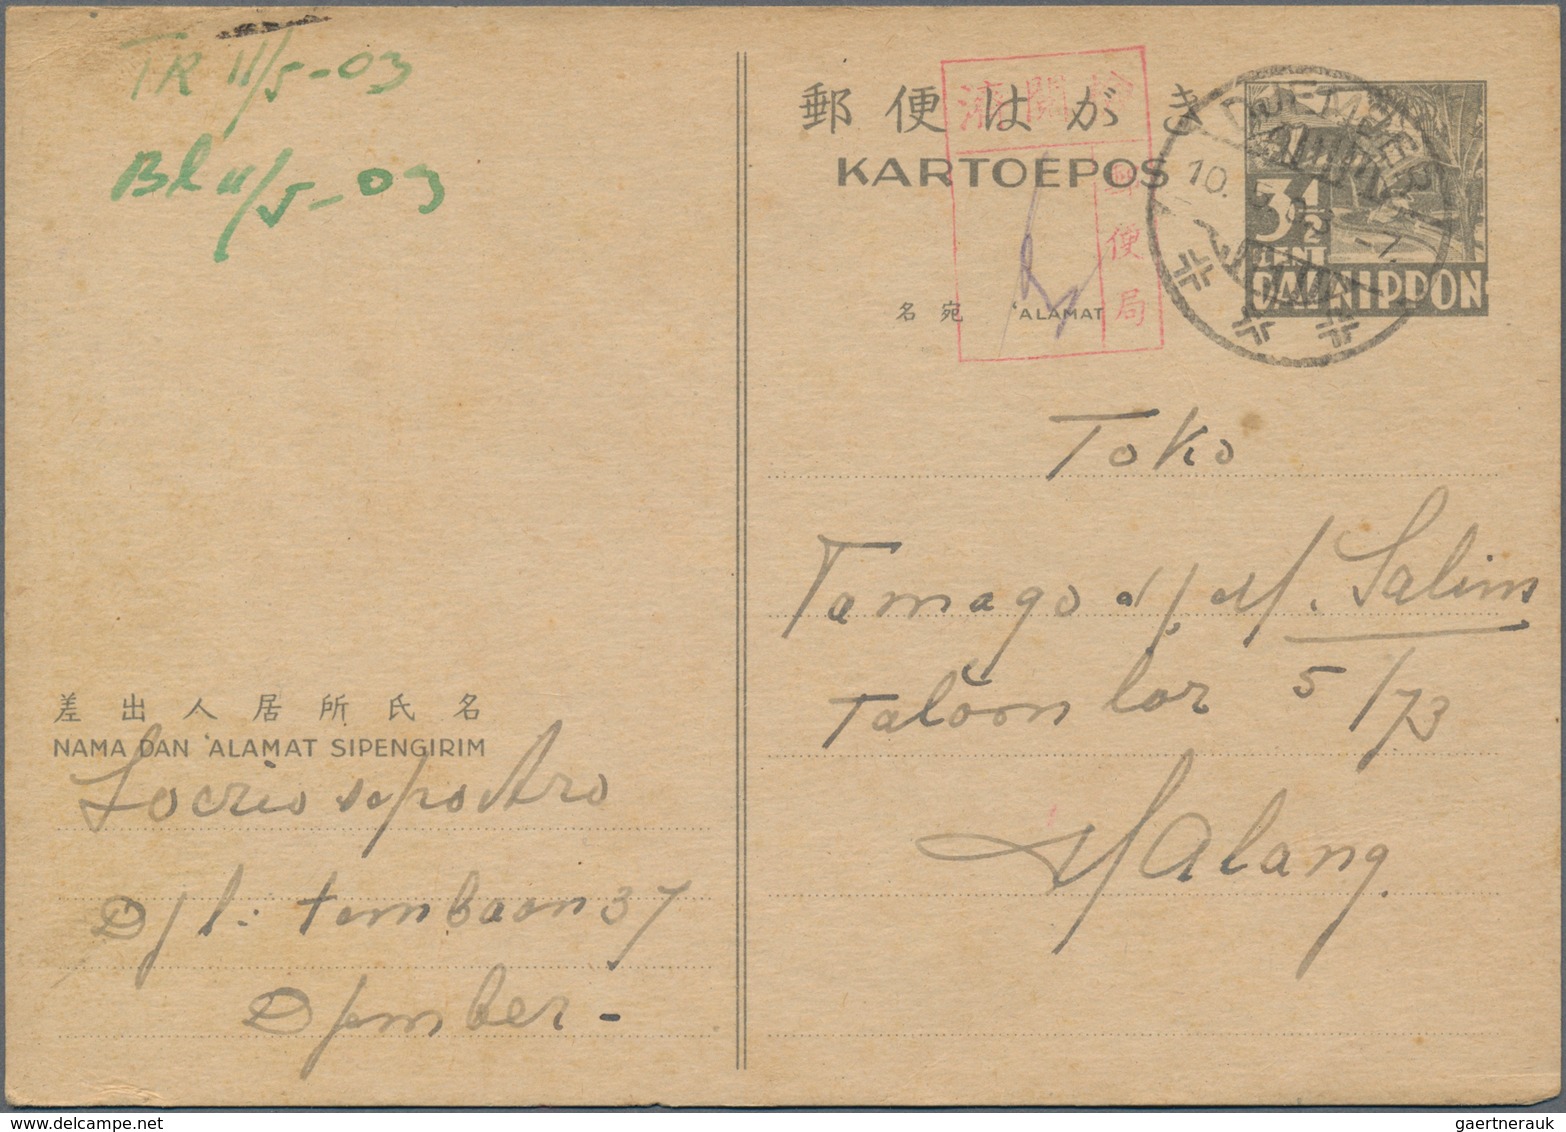 TR 11/5-03
Bl 11/5-03
郵便はがき
KARTOEPOS
検閲済
郵便局
DJEMBER
10. -7.
3½
CENT
DAI NIPPON
名宛 'ALAMAT
Toko
Tamago d/ M. Salim
Taloon lor 5/73
Malang.
差出人居所氏名
NAMA DAN 'ALAMAT SIPENGIRIM
Djl: tembaan 37
Djember -
delcampe.net
gaertnerauk